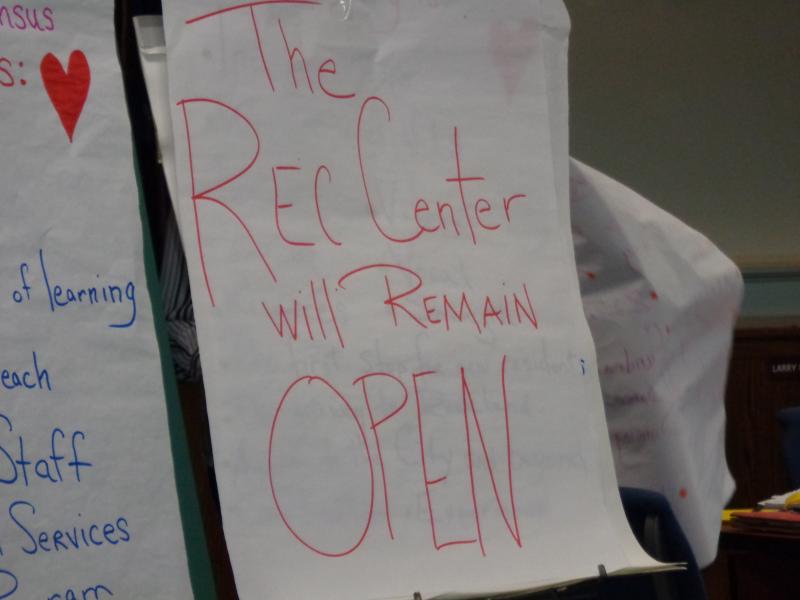 nsus
s:
of learning
each
Staff
Services
The
REC Center
will REMAIN
OPEN
LARRY